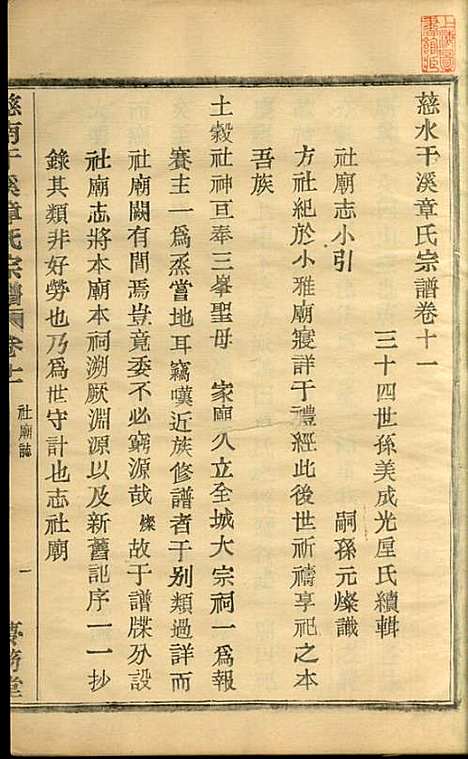 慈水干溪章氏宗譜卷十一
三十四世孫美成光垕氏續輯
社廟志小引
嗣孫元燦識
方社紀於小雅廟寢詳于禮經此後世祈禱享祀之本
吾族
土穀社神亘奉三峯聖母 家廟久立全城大宗祠一爲報
賽主一爲烝嘗地耳竊嘆近族修譜者于别類過詳而
社廟闕有間焉豈竟委不必窮源哉 燦 故于譜牒分設
社廟志將本廟本祠溯厥淵源以及新舊記序一一抄
錄其類非好勞也乃爲世守計也志社廟
慈南干溪章氏宗譜 卷十一
社廟誌
一